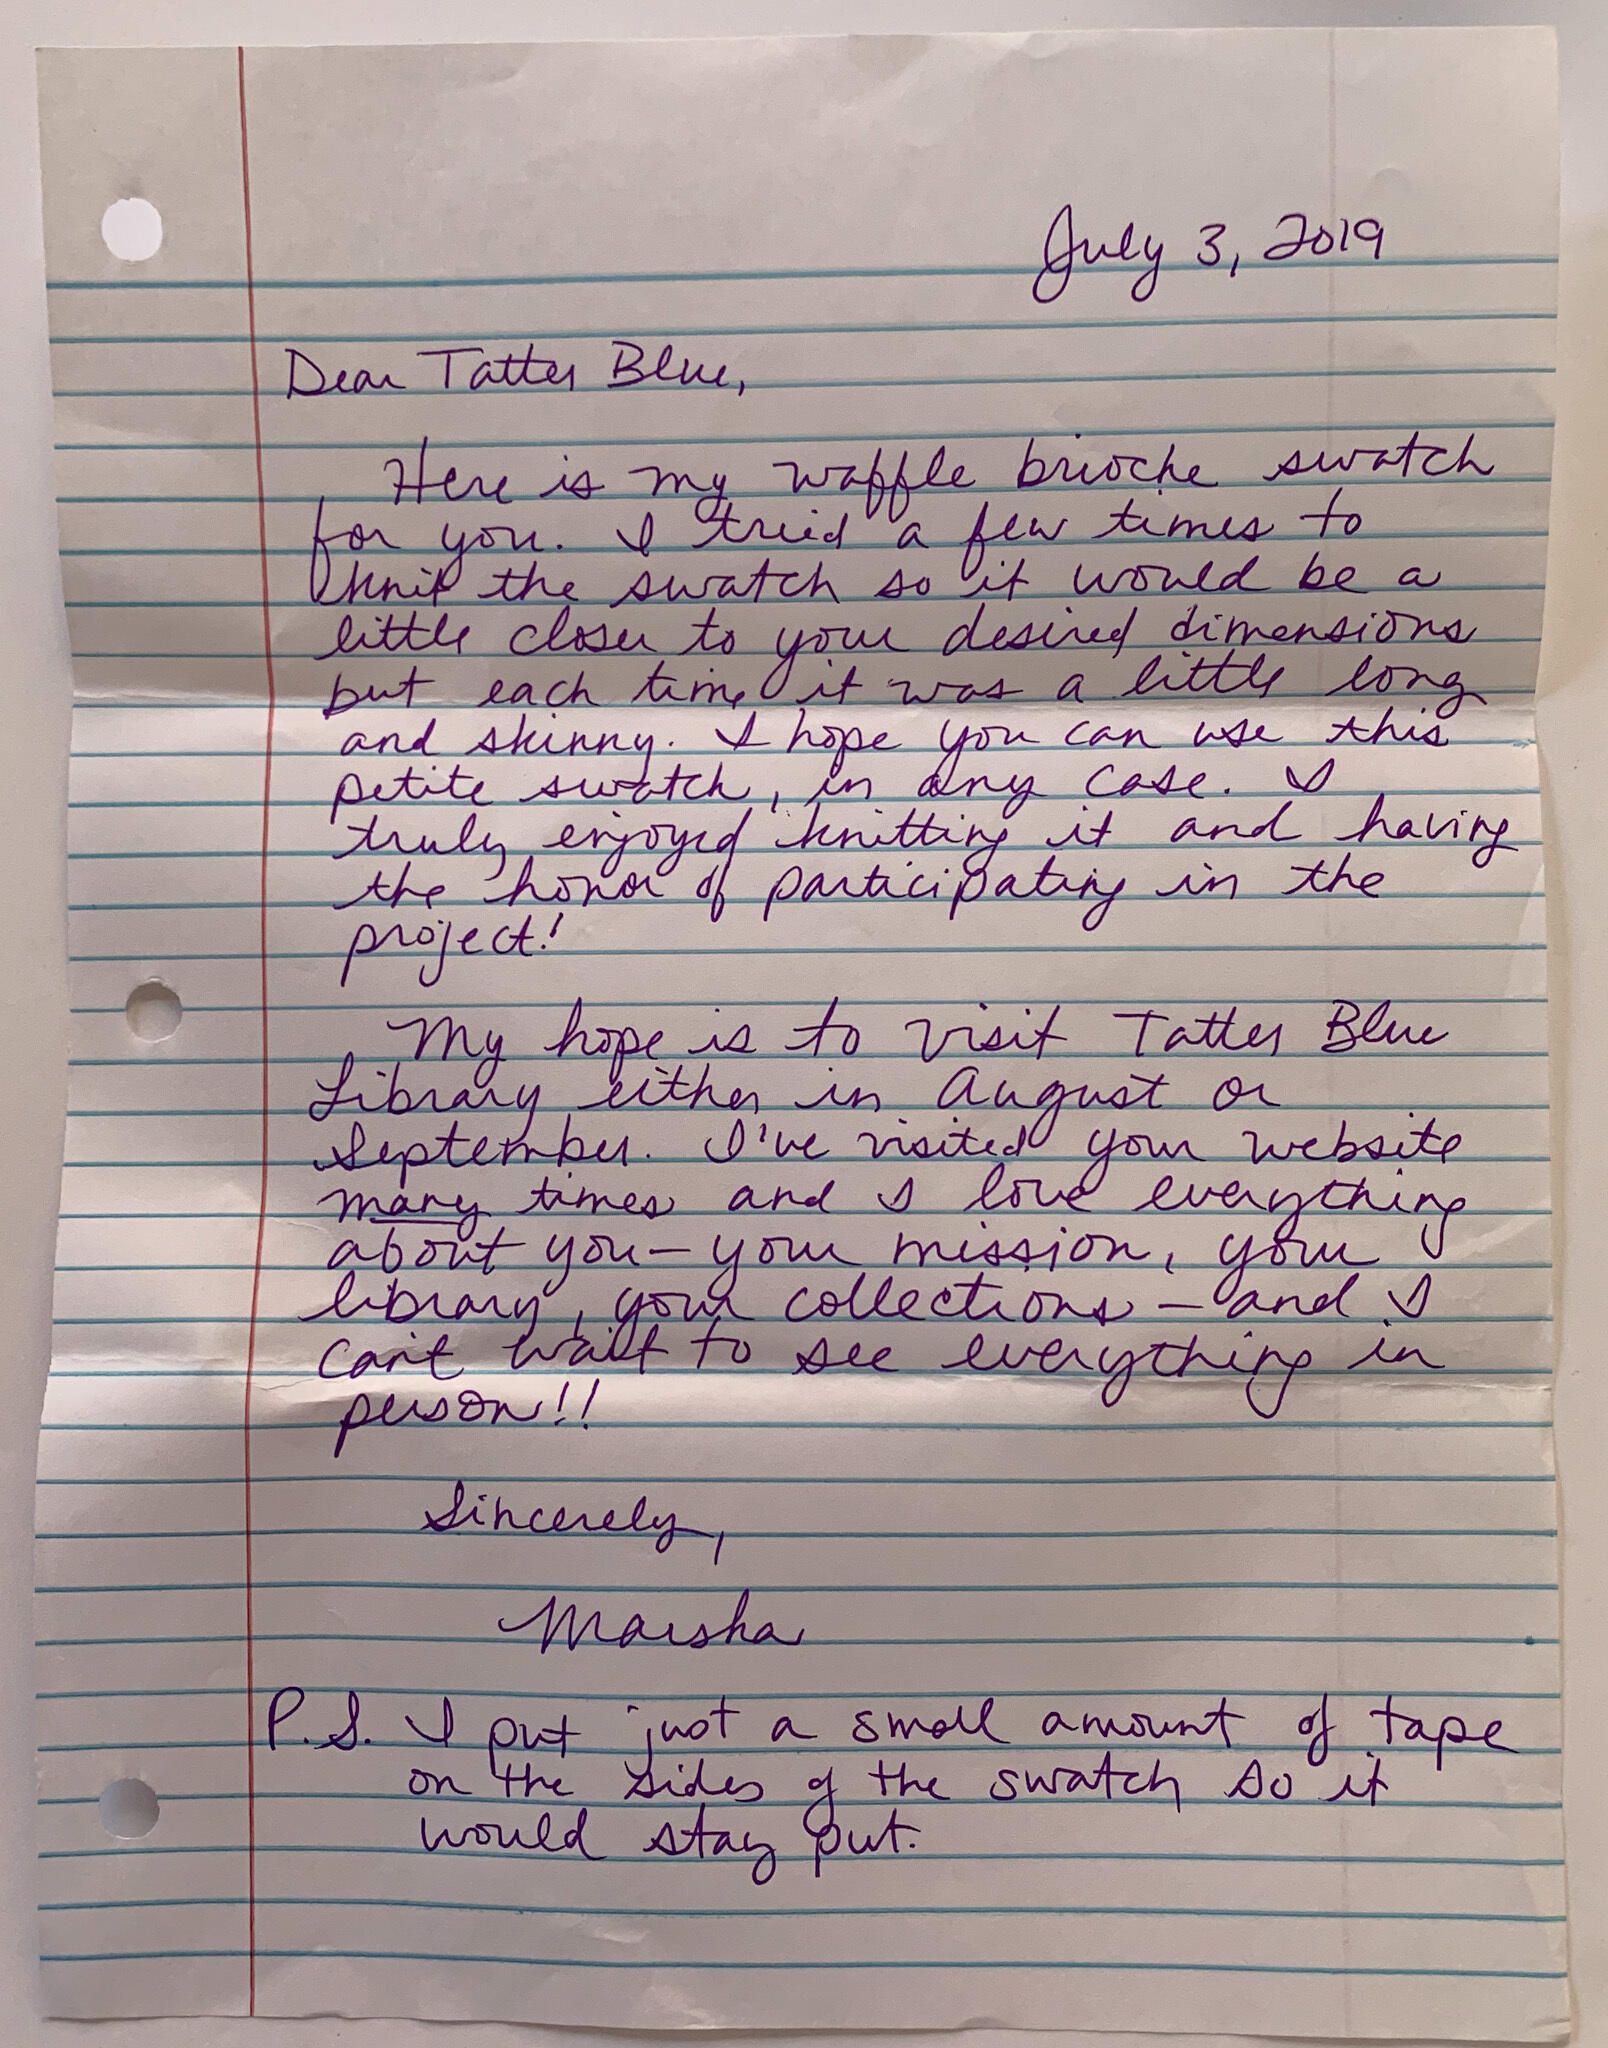 July 3, 2019
Dear Tatter Blue,
Here is my waffle brioche swatch
for you. I tried a few times to
knit the swatch so it would be a
little closer to your desired dimensions
but each time it was a little long
and skinny. I hope you can use this
petite swatch, in any case. I
truly enjoyed knitting it and having
the honor of participating in the
project!
My hope is to visit Tatter Blue
Library either in August or
September. I've visited your website
many times and I love everything
about you — your mission, your
library, your collections — and I
can't wait to see everything in
person!!
Sincerely,
Marsha
P.S. I put just a small amount of tape
on the sides of the swatch so it
would stay put.